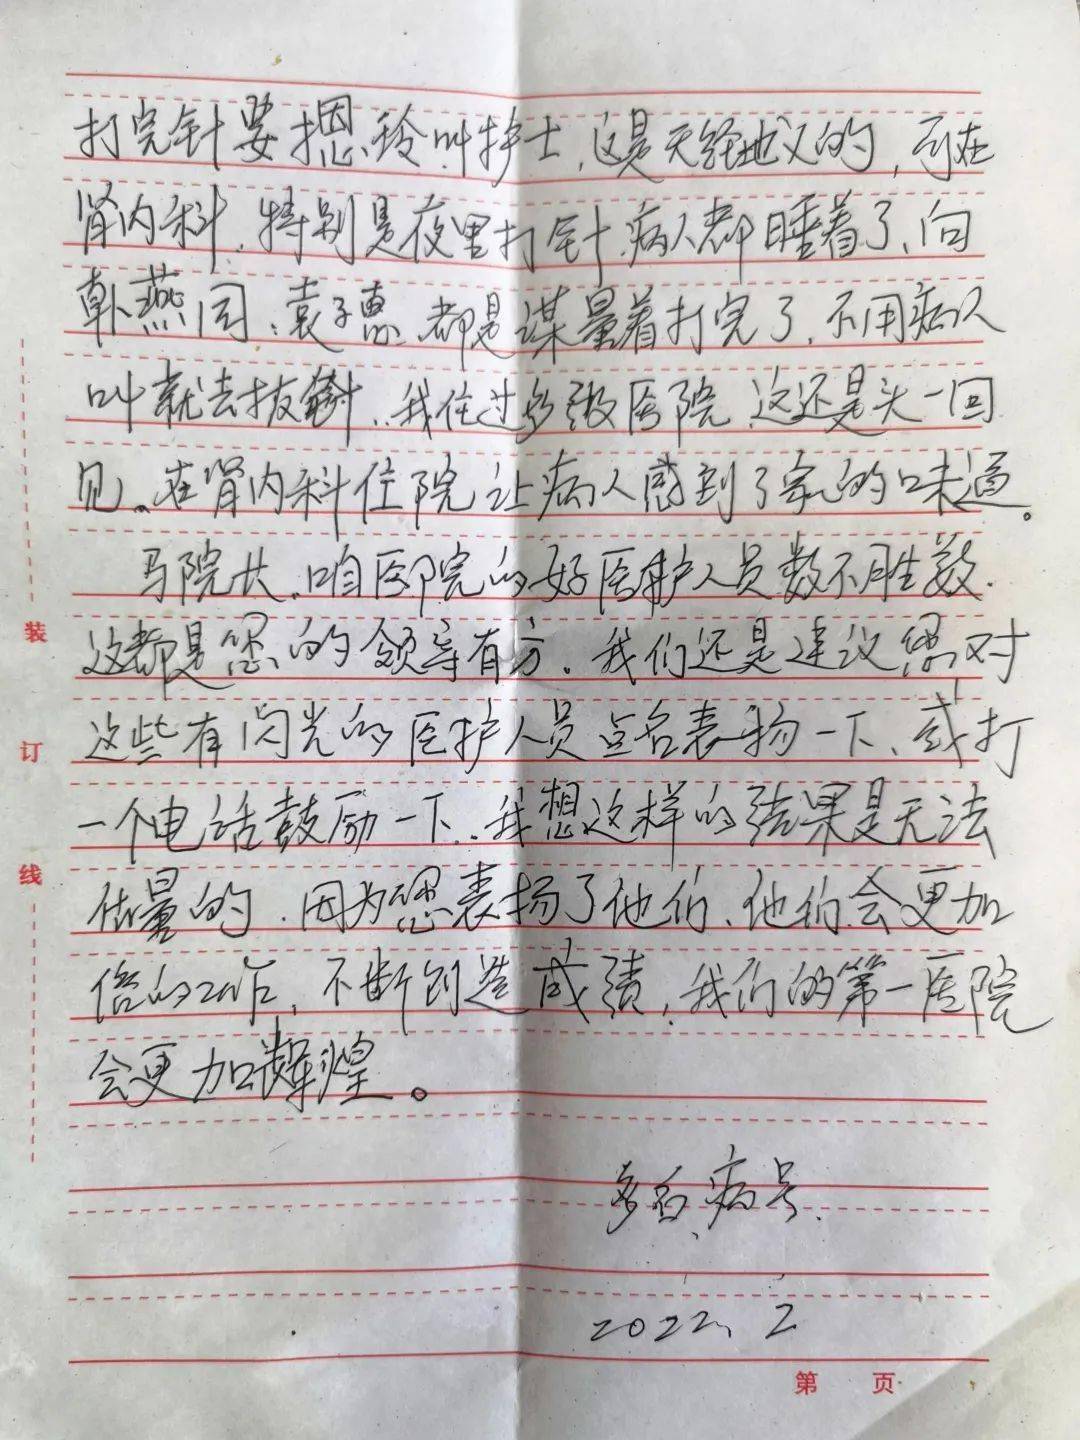 打完针要摁玲叫护士,这是天经地义的,可在
肾内科.特别是夜里打针.病人都睡着了、向
燕同、袁子惠.都是谋量着打完了.不用病人
叫就去拔针..我住过多级医院.这还是头一回
见。在肾内科住院让病人感到了家的味道。
马院长.咱医院的好医护人员数不胜数.
这都是您的领导有方.我们还是建议您对
这些有闪光的医护人员点名表扬一下、或打
一个电话鼓励一下..我想这样的结果是无法
估量的.因为您表扬了他们、他们会更加
倍的工作,不断创造成绩,我们的第一医院
会更加辉煌。
病号.
2022、2
装
订
线
第 页